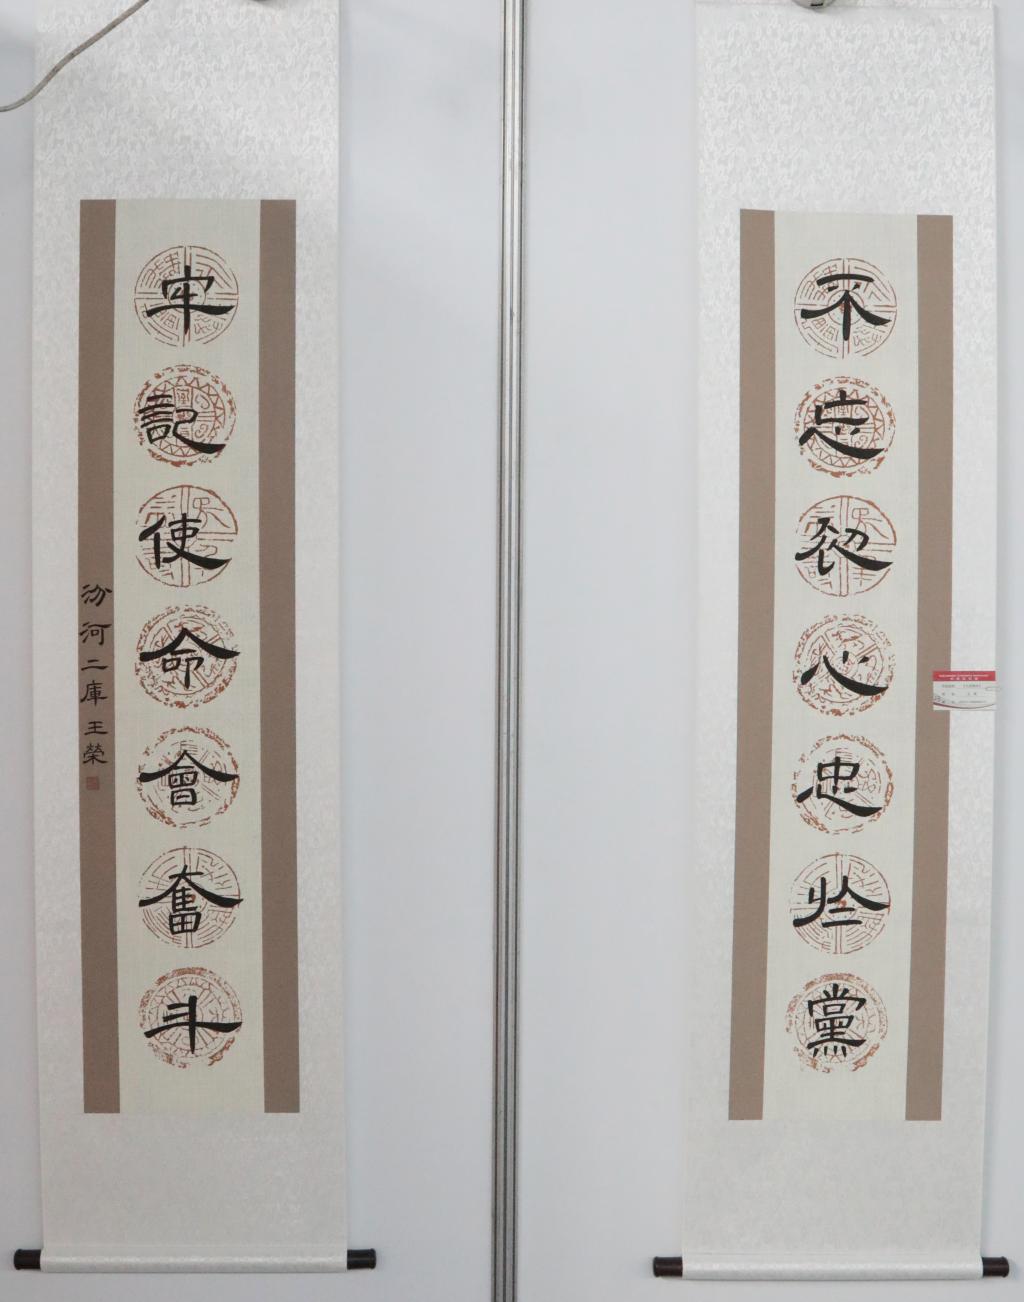 不忘初心忠於黨
牢記使命會奮斗
汾河二庫王榮